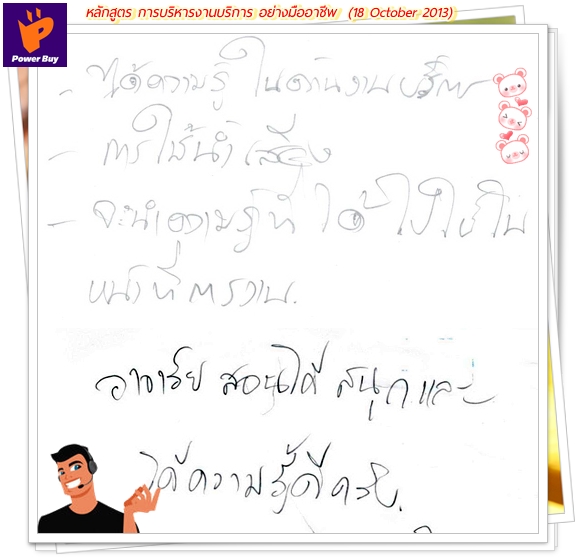 หลักสูตร การบริหารงานบริการ อย่างมืออาชีพ (18 October 2013)
Power Buy
- ได้ความรู้ ในด้านงานบริการ
- การใช้น้ำเสียง
- จะนำความรู้ที่ได้ไปใช้ใน
หน้าที่การงาน.
อาจารย์ สอนได้ สนุกและ
ได้ความรู้ดีครับ.